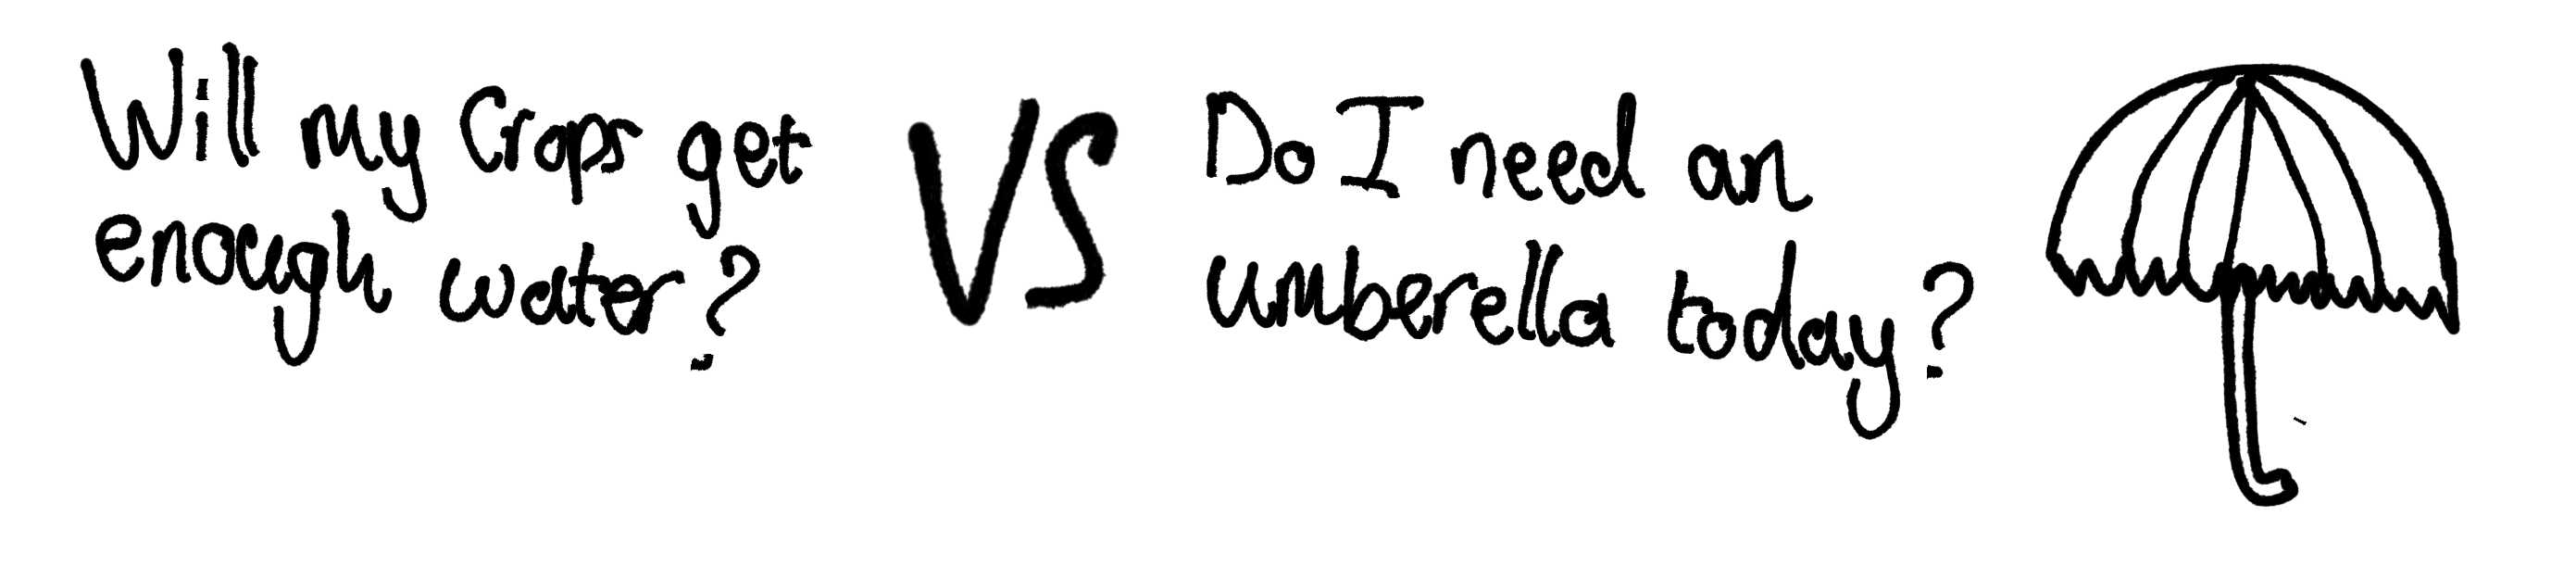 Will my Crops get
enough water?
VS
Do I need an
umberella today?